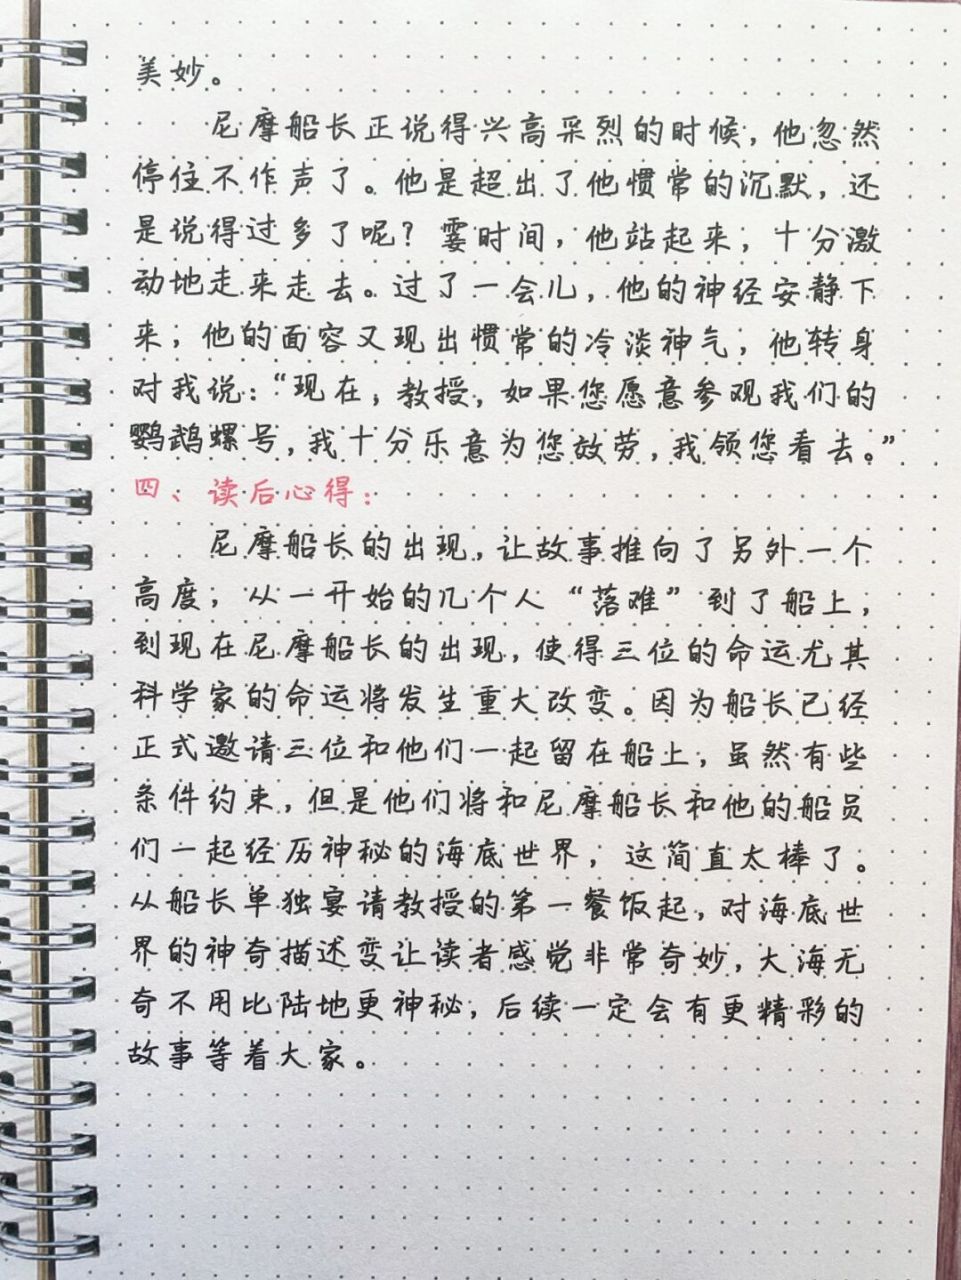 美妙。
尼摩船长正说得兴高采烈的时候，他忽然
停住不作声了。他是超出了他惯常的沉默，还
是说得过多了呢？霎时间，他站起来，十分激
动地走来走去。过了一会儿，他的神经安静下
来；他的面容又现出惯常的冷淡神气，他转身
对我说：“现在，教授，如果您愿意参观我们的
鹦鹉螺号，我十分乐意为您效劳，我领您看去。”
四、读后心得：
尼摩船长的出现，让故事推向了另外一个
高度，从一开始的几个人“落难”到了船上，
到现在尼摩船长的出现，使得三位的命运尤其
科学家的命运将发生重大改变。因为船长已经
正式邀请三位和他们一起留在船上，虽然有些
条件约束，但是他们将和尼摩船长和他的船员
们一起经历神秘的海底世界，这简直太棒了。
从船长单独宴请教授的第一餐饭起，对海底世
界的神奇描述变让读者感觉非常奇妙，大海无
奇不用比陆地更神秘，后续一定会有更精彩的
故事等着大家。